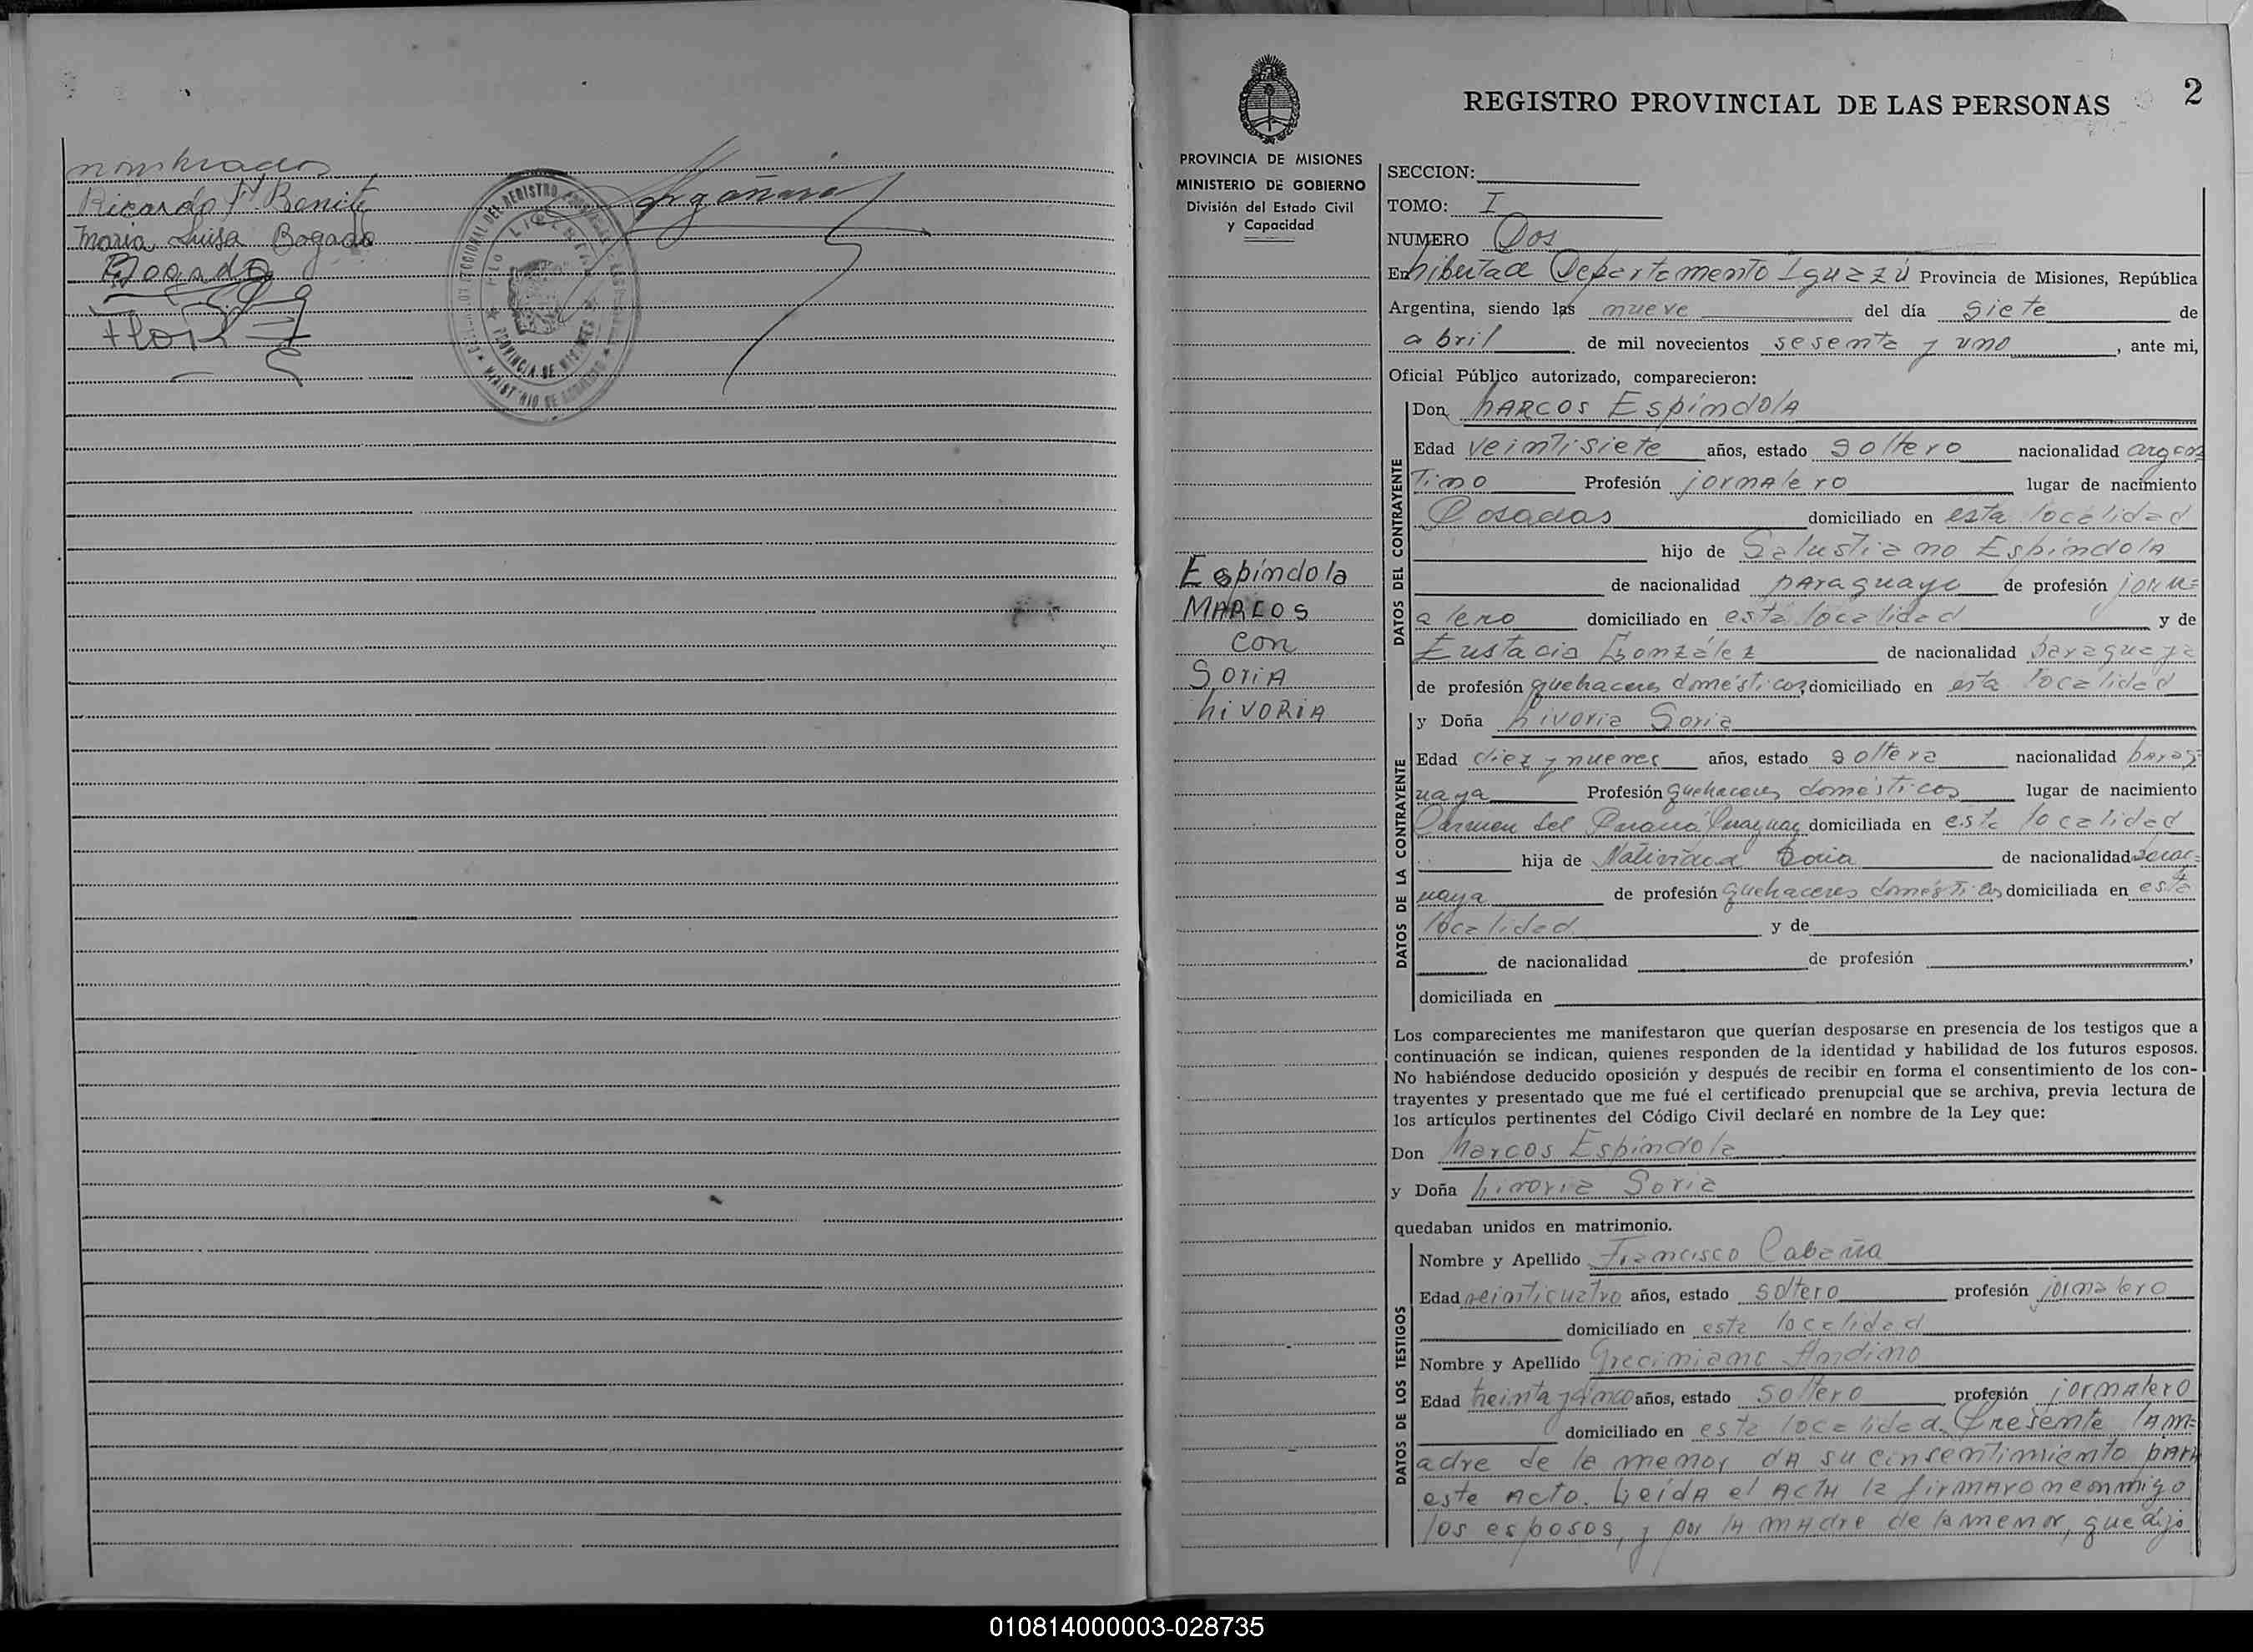 nombrados
Ricardo F. Benite
Maria Luisa Bogado
Bogado
Flor
REGISTRO PROVINCIAL DE LAS PERSONAS
2
PROVINCIA DE MISIONES
MINISTERIO DE GOBIERNO
División del Estado Civil
y Capacidad
Espíndola
MARCOS
con
SORIA
LIVORIA
SECCION:
TOMO: I
NUMERO Dos
En Libertad Departamento Iguazú Provincia de Misiones, República
Argentina, siendo las nueve del día siete de
abril de mil novecientos sesenta y uno, ante mi,
Oficial Público autorizado, comparecieron:
DATOS DEL CONTRAYENTE
Don MARCOS EspíndolA
Edad veintisiete años, estado soltero nacionalidad argen
tino Profesión jornalero lugar de nacimiento
Posadas domiciliado en esta localidad
hijo de Salustiano EspíndolA
de nacionalidad paraguayo de profesión jorn=
alero domiciliado en esta localidad y de
Eustacia González de nacionalidad paraguaya
de profesión quehaceres domésticos, domiciliado en esta localidad
DATOS DE LA CONTRAYENTE
y Doña Livoria Soria
Edad diez y nueves años, estado soltera nacionalidad parag=
uaya Profesión quehaceres domésticos lugar de nacimiento
Carmen del Paraná Paraguay domiciliada en esta localidad
hija de Natividad Soria de nacionalidad parag=
uaya de profesión quehaceres domésticos domiciliada en esta
localidad y de
de nacionalidad de profesión ,
domiciliada en
Los comparecientes me manifestaron que querían desposarse en presencia de los testigos que a
continuación se indican, quienes responden de la identidad y habilidad de los futuros esposos.
No habiéndose deducido oposición y después de recibir en forma el consentimiento de los con-
trayentes y presentado que me fué el certificado prenupcial que se archiva, previa lectura de
los artículos pertinentes del Código Civil declaré en nombre de la Ley que:
Don Marcos Espíndola
y Doña Livoria Soria
quedaban unidos en matrimonio.
DATOS DE LOS TESTIGOS
Nombre y Apellido Francisco Cabaña
Edad veinticuatro años, estado soltero profesión jornalero
domiciliado en esta localidad
Nombre y Apellido Greciniano Andino
Edad treinta y cinco años, estado soltero profesión jornalero
domiciliado en esta localidad. Presente la m=
adre de la menor da su consentimiento para
este Acto. Leída el Acta la firmaron conmigo
los esposos, y por la madre de la menor, que dijo
010814000003-028735